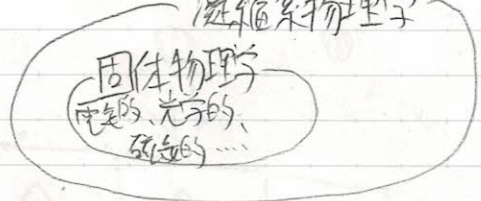 凝縮系物理学
固体物理学
電気的、光学的、
磁気的……